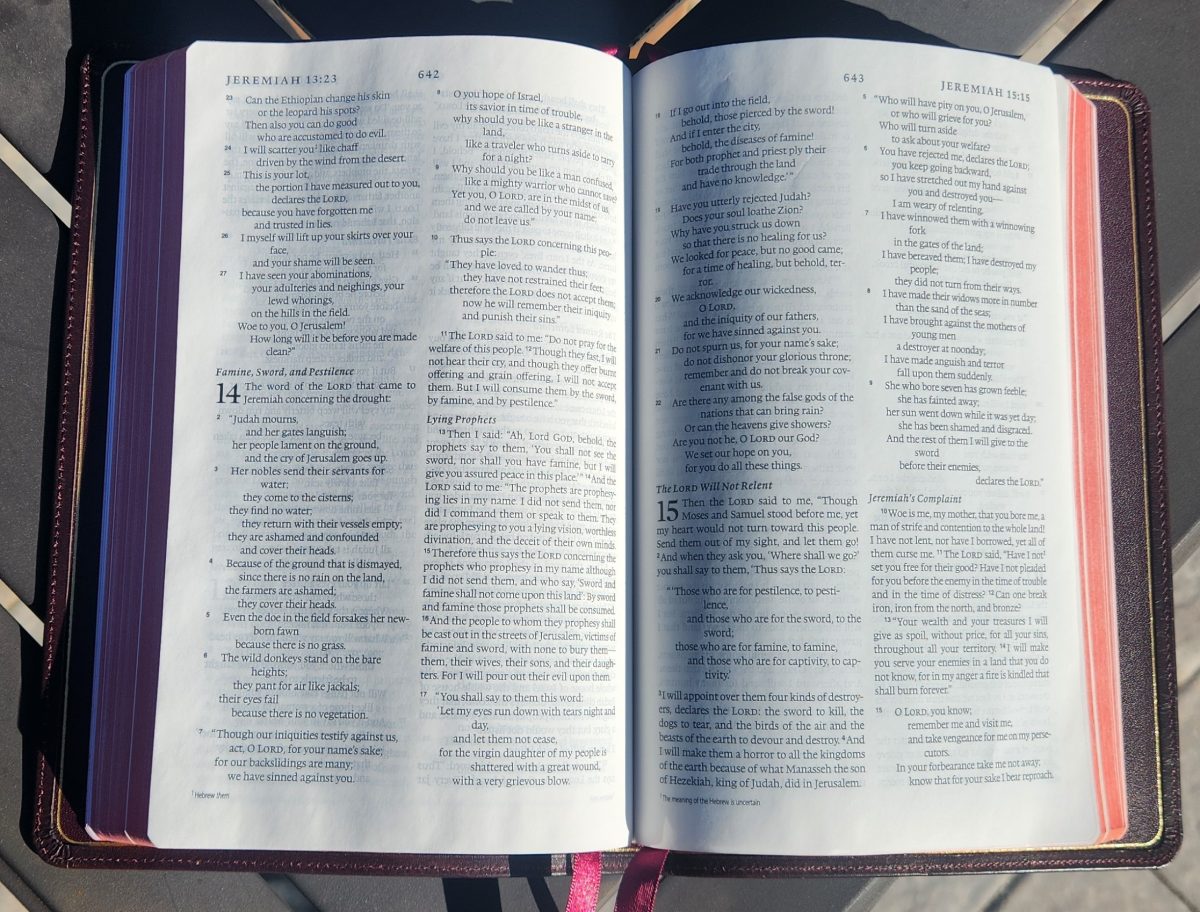 JEREMIAH 13:23
642
23 Can the Ethiopian change his skin
or the leopard his spots?
Then also you can do good
who are accustomed to do evil.
24 I will scatter you¹ like chaff
driven by the wind from the desert.
25 This is your lot,
the portion I have measured out to you,
declares the LORD,
because you have forgotten me
and trusted in lies.
26 I myself will lift up your skirts over your
face,
and your shame will be seen.
27 I have seen your abominations,
your adulteries and neighings, your
lewd whorings,
on the hills in the field.
Woe to you, O Jerusalem!
How long will it be before you are made
clean?"
Famine, Sword, and Pestilence
14 The word of the LORD that came to
Jeremiah concerning the drought:
2 "Judah mourns,
and her gates languish;
her people lament on the ground,
and the cry of Jerusalem goes up.
3 Her nobles send their servants for
water;
they come to the cisterns;
they find no water;
they return with their vessels empty;
they are ashamed and confounded
and cover their heads.
4 Because of the ground that is dismayed,
since there is no rain on the land,
the farmers are ashamed;
they cover their heads.
5 Even the doe in the field forsakes her new-
born fawn
because there is no grass.
6 The wild donkeys stand on the bare
heights;
they pant for air like jackals;
their eyes fail
because there is no vegetation.
7 "Though our iniquities testify against us,
act, O LORD, for your name's sake;
for our backslidings are many;
we have sinned against you.
¹ Hebrew them
8 O you hope of Israel,
its savior in time of trouble,
why should you be like a stranger in the
land,
like a traveler who turns aside to tarry
for a night?
9 Why should you be like a man confused,
like a mighty warrior who cannot save?
Yet you, O LORD, are in the midst of us,
and we are called by your name;
do not leave us."
10 Thus says the LORD concerning this peo-
ple:
"They have loved to wander thus;
they have not restrained their feet;
therefore the LORD does not accept them;
now he will remember their iniquity
and punish their sins."
11 The LORD said to me: "Do not pray for the
welfare of this people. 12 Though they fast, I will
not hear their cry, and though they offer burnt
offering and grain offering, I will not accept
them. But I will consume them by the sword,
by famine, and by pestilence."
Lying Prophets
13 Then I said: "Ah, Lord GOD, behold, the
prophets say to them, 'You shall not see the
sword, nor shall you have famine, but I will
give you assured peace in this place.'" 14 And the
LORD said to me: "The prophets are prophesy-
ing lies in my name. I did not send them, nor
did I command them or speak to them. They
are prophesying to you a lying vision, worthless
divination, and the deceit of their own minds.
15 Therefore thus says the LORD concerning the
prophets who prophesy in my name although
I did not send them, and who say, 'Sword and
famine shall not come upon this land': By sword
and famine those prophets shall be consumed.
16 And the people to whom they prophesy shall
be cast out in the streets of Jerusalem, victims of
famine and sword, with none to bury them—
them, their wives, their sons, and their daugh-
ters. For I will pour out their evil upon them.
17 "You shall say to them this word:
'Let my eyes run down with tears night and
day,
and let them not cease,
for the virgin daughter of my people is
shattered with a great wound,
with a very grievous blow.
643
JEREMIAH 15:15
18 If I go out into the field,
behold, those pierced by the sword!
And if I enter the city,
behold, the diseases of famine!
For both prophet and priest ply their
trade through the land
and have no knowledge.'"
19 Have you utterly rejected Judah?
Does your soul loathe Zion?
Why have you struck us down
so that there is no healing for us?
We looked for peace, but no good came;
for a time of healing, but behold, ter-
ror.
20 We acknowledge our wickedness,
O LORD,
and the iniquity of our fathers,
for we have sinned against you.
21 Do not spurn us, for your name's sake;
do not dishonor your glorious throne;
remember and do not break your cov-
enant with us.
22 Are there any among the false gods of the
nations that can bring rain?
Or can the heavens give showers?
Are you not he, O LORD our God?
We set our hope on you,
for you do all these things.
The LORD Will Not Relent
15 Then the LORD said to me, "Though
Moses and Samuel stood before me, yet
my heart would not turn toward this people.
Send them out of my sight, and let them go!
2 And when they ask you, 'Where shall we go?'
you shall say to them, 'Thus says the LORD:
"'Those who are for pestilence, to pesti-
lence,
and those who are for the sword, to the
sword;
those who are for famine, to famine,
and those who are for captivity, to cap-
tivity.'
3 I will appoint over them four kinds of destroy-
ers, declares the LORD: the sword to kill, the
dogs to tear, and the birds of the air and the
beasts of the earth to devour and destroy. 4 And
I will make them a horror to all the kingdoms
of the earth because of what Manasseh the son
of Hezekiah, king of Judah, did in Jerusalem.
¹ The meaning of the Hebrew is uncertain
5 "Who will have pity on you, O Jerusalem,
or who will grieve for you?
Who will turn aside
to ask about your welfare?
6 You have rejected me, declares the LORD;
you keep going backward,
so I have stretched out my hand against
you and destroyed you—
I am weary of relenting.
7 I have winnowed them with a winnowing
fork
in the gates of the land;
I have bereaved them; I have destroyed my
people;
they did not turn from their ways.
8 I have made their widows more in number
than the sand of the seas;
I have brought against the mothers of
young men
a destroyer at noonday;
I have made anguish and terror
fall upon them suddenly.
9 She who bore seven has grown feeble;
she has fainted away;
her sun went down while it was yet day;
she has been shamed and disgraced.
And the rest of them I will give to the
sword
before their enemies,
declares the LORD."
Jeremiah's Complaint
10 Woe is me, my mother, that you bore me, a
man of strife and contention to the whole land!
I have not lent, nor have I borrowed, yet all of
them curse me. 11 The LORD said, "Have I not¹
set you free for their good? Have I not pleaded
for you before the enemy in the time of trouble
and in the time of distress? 12 Can one break
iron, iron from the north, and bronze?
13 "Your wealth and your treasures I will
give as spoil, without price, for all your sins,
throughout all your territory. 14 I will make
you serve your enemies in a land that you do
not know, for in my anger a fire is kindled that
shall burn forever."
15 O LORD, you know;
remember me and visit me,
and take vengeance for me on my perse-
cutors.
In your forbearance take me not away;
know that for your sake I bear reproach.